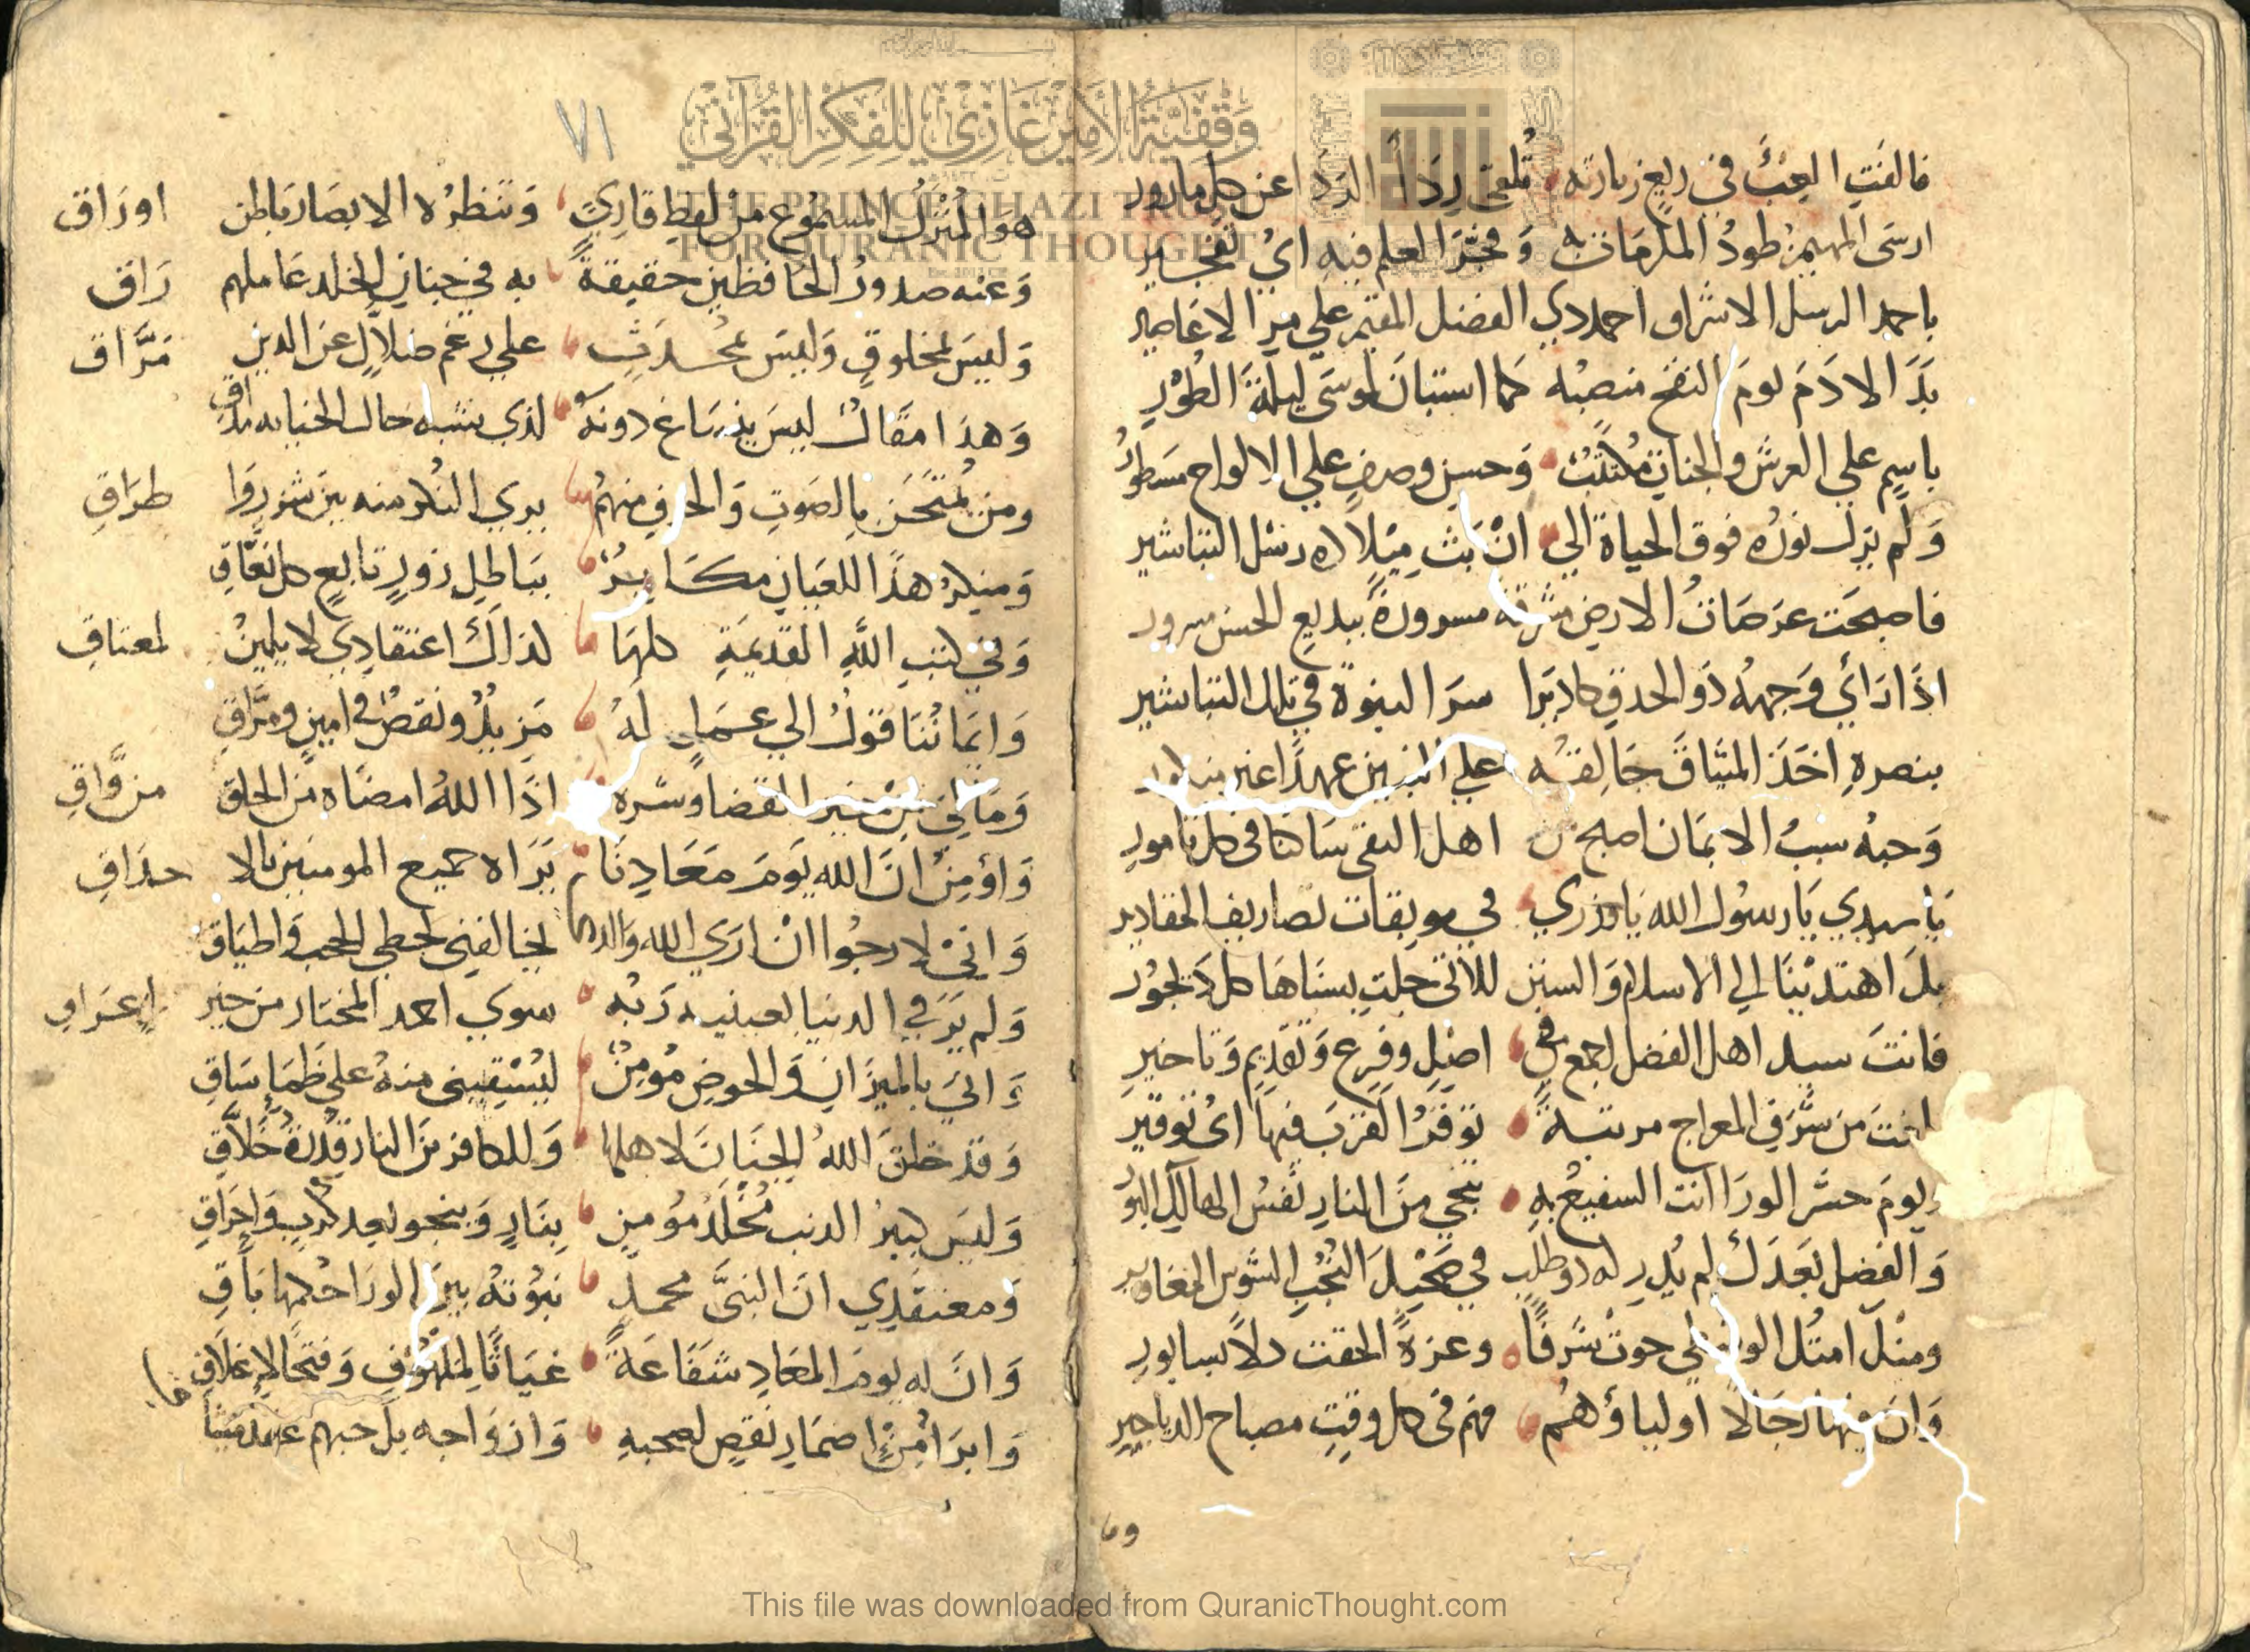 فالفَتِ العِبَّ في ربع زيارته تُلقى رِدَاً الرد اعن كل مازور
ارسَى المهيمن طودُ المكرمَات به وَ فجَّرَ العلم فيه ايُ تفجير
باحمد الرسل الاشراف احمد ذي الفضل المقيم علي مر الاعاصير
بَدَا لادَمَ يومَ النفخ منصبُه كما استبَانَ لموسَى ليلةَ الطُوْرِ
باسمٍ علي العرش والجنات مُكتَتَبٌ وَحسن وصفٍ علي الالواح مسَطُورُ
وَلم يزل نورُه فوق الحياة الي انْ بَث مِيْلاده رسْل التباشير
فاصبحَت عرَصَاتُ الارض مشرقة مسرورةً ببديع الحسن مسرور
اذَا رَأي وَجههُ ذَو الحدق كاد يَرا سرَ النبوة في تلك التباشير
بنصرهِ اخَذَ الميثاقَ خَالقه علي النبيين عهدًا غير
وَحبهُ سببُ الايمَان اصبح اهل التقى سَاكنا في كل تامور
يَا سيدي يَا رسوُل الله يَا وزري في موبقات تصاريف المقادير
بكَ اهتديْنَا الي الاسلام وَالسنن اللاتى جلت بسنَاهَا كل دَيجوُر
فانتَ سيد اهل الفضل اجمع في اصْلٍ وفرعٍ وَتقديم وَتاخير
من شرفِ المعراج مرتبةً توفرُ القربَ فيها ايُ توقير
ويومَ حشر الورَا انت الشفيعُ به ينجي مِنَ النارِ نفسُ الهالك البور
وَالفضل بَعدَكَ لم يُدرِ له
ومثلَ امتُك الوسْطي حوتْ شرَفًا وعزةً الحقت دلاً بسابور
وَان فيهَا رجَالاً اولياؤهُم فهم في كل وقتٍ مصباح الدياجير
وما
٧١
هوَ المُنْزَلُ المسموُع منْ لفظِ قارِئٍ وَتنظرُه الابصَار بَاطن اورَاق
وَعنه صدورُ الحَافظين حقيقةً به في جنانِ الخلد عَاملهم رَاق
وَليسَ بمخلوقٍ وَليسَ بمحُدَثٍ علي رغم ضلاَّلٍ عنَ الدين مَرَّاق
وَهذا مقَالٌ ليسَ
ومن مُمتحَن بالصَوتِ وَالحرفِ منهمُ يري النكر منه بين شررِ وَا طرَاقِ
وَمنكرُ هذَا للعَيانِ مكَابرٌ ببَاطلِ زورٍ تابعٍ كل نعَّاقِ
وَفي كتبِ اللهِ القديمَةِ كلهَا لذاكَ اعتقادِي لا يلين لمعتاقِ
وَايمانُنَا قوْلٌ الي عَملٍ لَهُ مَزيدٌ ونقصٌ في امينٍ ومرَّاقِ
وَمَا لي منْ خير القضا وشره اذَا اللهُ امضَاه منَ الخلق من وَّاقِ
وَاؤمِنُ انَ الله يَومَ مَعَادِنَا يَرَاه جميع المومنين بالا حدَاقِ
وَانيْ لارجُوا انْ ارَي الله والدما يخالفني لحظي الحب وَاطيَاق
وَلم يرَ في الدنيا بعينيه رَبُه سوي احمد المختار من خير اعرَافِ
وَانيَ بالميزَان وَالحوضِ مُومِنٌ ليُسْقِيني منهُ علي ظَمَإٍ سَاقِ
وَقد خلقَ اللهُ الجنَانَ لاهلها وَللكافرِ منَ النار قُدْرةُ خَلاَّقِ
وَليسَ كبيرُ الذنب مُخْلَدُ مُومنٍ بِنَارٍ وَينجو بعد كربٍ وَاحرَاقِ
وَمعتقدِي انَ النبيَّ محمدٍ نبوُتهُ بينَ الورَا حُكمها بَاقِ
وَانَ له يومَ المعَادِ شفَاعَةً غيَاثًا لملهوُف وَفتحًا لاِغلاَقِ
وَابرَا منِ اضمَارِ نقصٍ لصحبهِ وَازوَاجه بل حبهم عهد ميثاقِ
وَقفيّة الأمير غَازي للفكر القرآني
THE PRINCE GHAZI TRUST
FOR QURANIC THOUGHT
This file was downloaded from QuranicThought.com